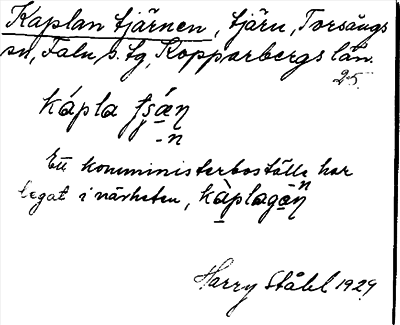 Kaplan tjärnen, tjärn, Torsångs
sn, Falu s. tg, Kopparbergs län.
25.
kápla
-n
Ett komministerboställe har
legat i närheten, kàplagån
Harry Ståhl 1929